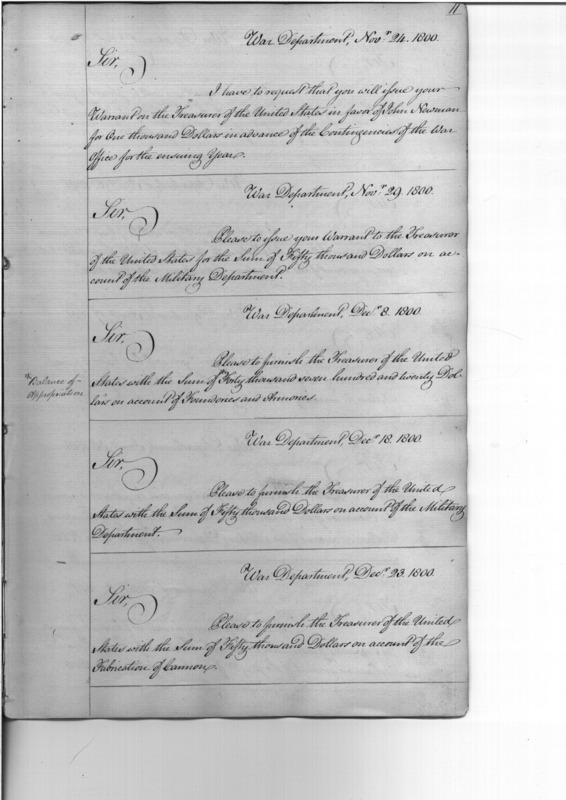 11
War Department, Novr 24. 1800.
Sir,
I have to request that you will issue your
Warrant on the Treasurer of the United States in favor of John Newman
for One thousand Dollars in advance of the Contingencies of the War
Office for the ensuing Year.
War Department, Novr 29. 1800.
Sir,
Please to issue your Warrant to the Treasurer
of the United States for the Sum of Fifty thousand Dollars on ac-
count of the Military Department.
War Department, Decr 8. 1800.
Sir,
Please to furnish the Treasurer of the United
Balance of
Appropriation
States with the Sum of Forty thousand seven hundred and twenty Dol-
lars on account of Founderies and Armories.
War Department, Decr 18. 1800.
Sir,
Please to furnish the Treasurer of the United
States with the Sum of Fifty thousand Dollars on account of the Military
Department.
War Department, Decr 23. 1800.
Sir,
Please to furnish the Treasurer of the United
States with the Sum of Fifty thousand Dollars on account of the
Fabrication of Cannon.